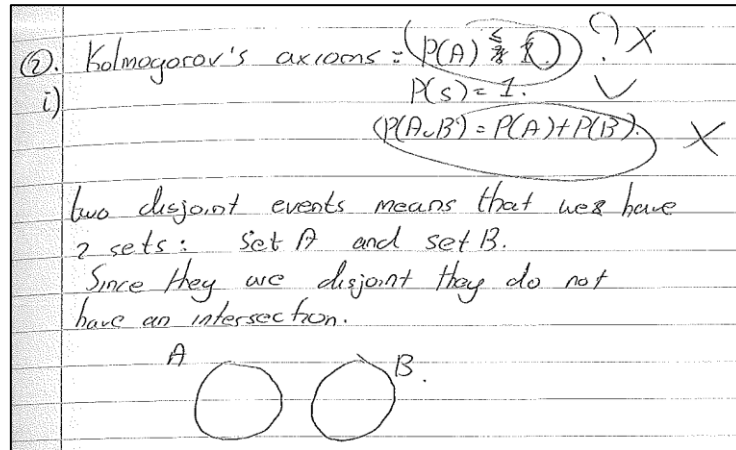 ②. Kolmogorov's axioms = P(A) ≤ 1. ? X
i) P(s) = 1. ✓
P(A∪B) = P(A)+P(B). X
two disjoint events means that we have
2 sets: Set A and set B.
Since they are disjoint they do not
have an intersection.
A B.